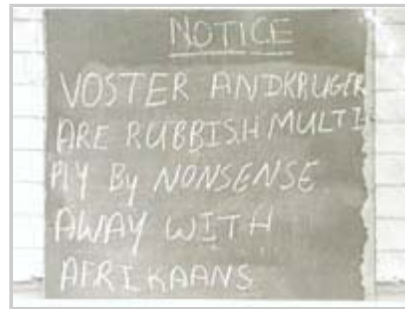 NOTICE
VOSTER ANDKRUGER
ARE RUBBISH MULTI
PLY By NONSENSE
AWAY WITH
AFRIKAANS